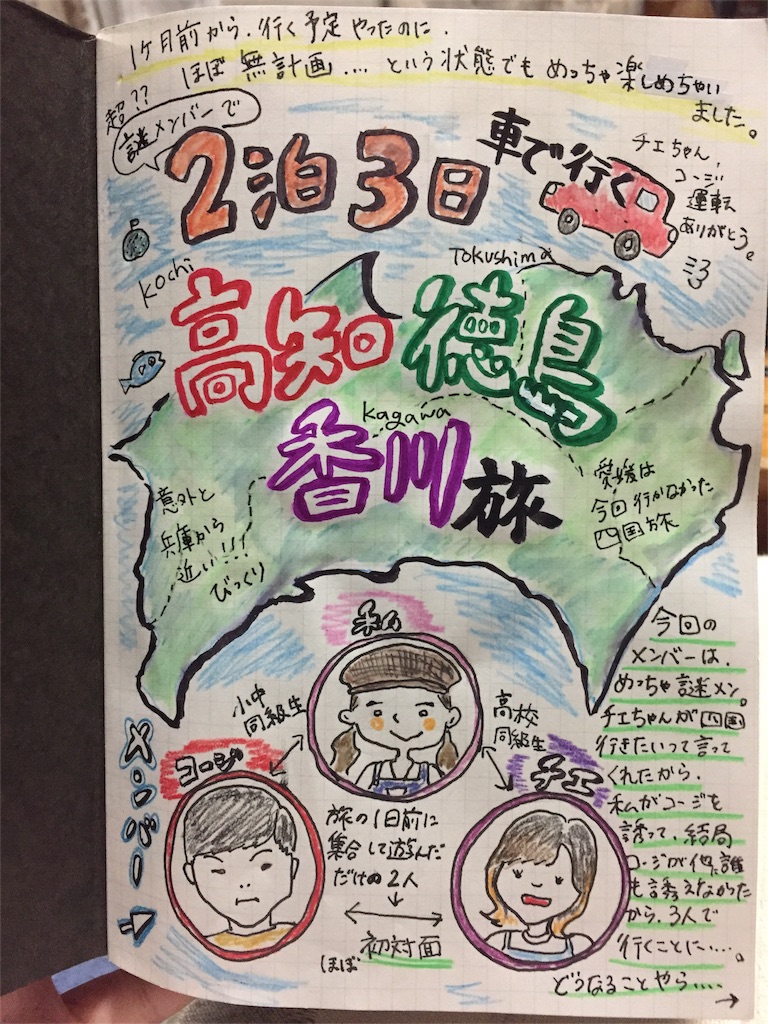 1ヶ月前から、行く予定やったのに、
ほぼ無計画....という状態でもめっちゃ楽しめちゃい
ました。
超??
謎メンバーで
2泊3日
車で行く
チエちゃん、
コージ
運転
ありがとう。
Kochi
Tokushima
高知
徳島
Kagawa
香川旅
意外と
兵庫から
近い!!!
びっくり
愛媛は
今回行かなかった
四国旅
メンバー
私
小中
同級生
高校
同級生
コージ
チエ
旅の1日前に
集合して遊んだ
だけの2人
ほぼ 初対面
今回の
メンバーは、
めっちゃ謎メン。
チエちゃんが四国
行きたいって言って
くれたから、
私がコージを
誘って、結局
コージが他に誰
も誘えなかった
から、3人で
行くことに....。
どうなることやら....